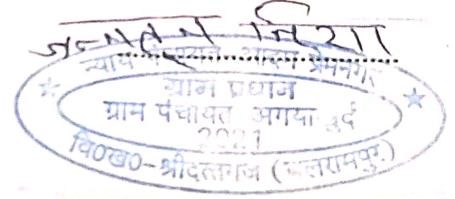 जन्नतुन निशा
न्याय पंचायत आदम प्रेमनगर
ग्राम प्रधान
ग्राम पंचायत अगया खुर्द
2021
वि०ख०-श्रीदत्तगंज (बलरामपुर)